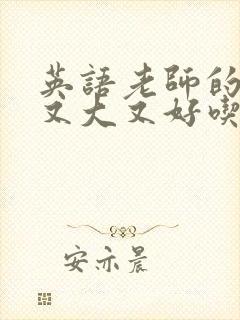 英語老師的
又大又好喫
安亦晨